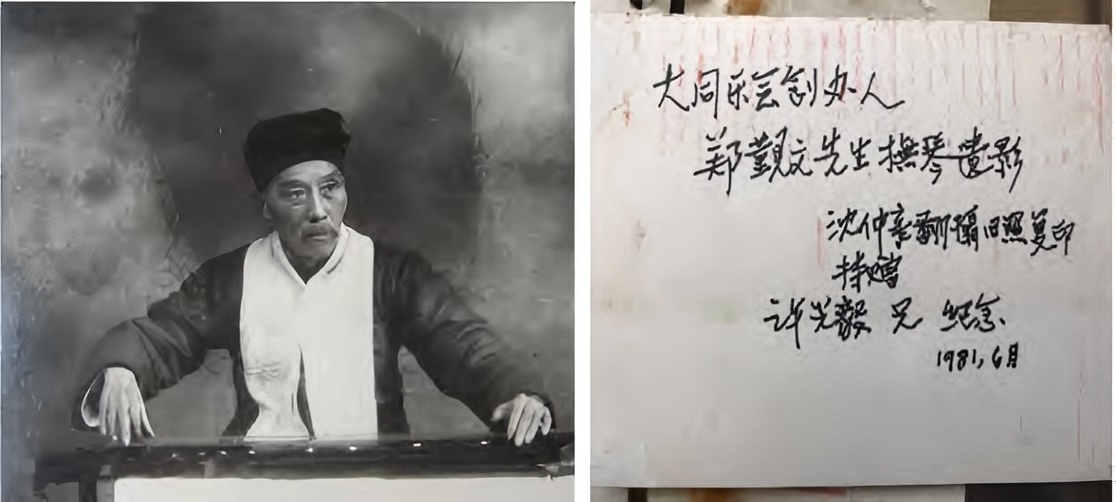 大同乐会创办人
郑觐文先生抚琴遗影
沈仲章翻摄旧照复印
持赠
许光毅 兄 纪念
1981,6月